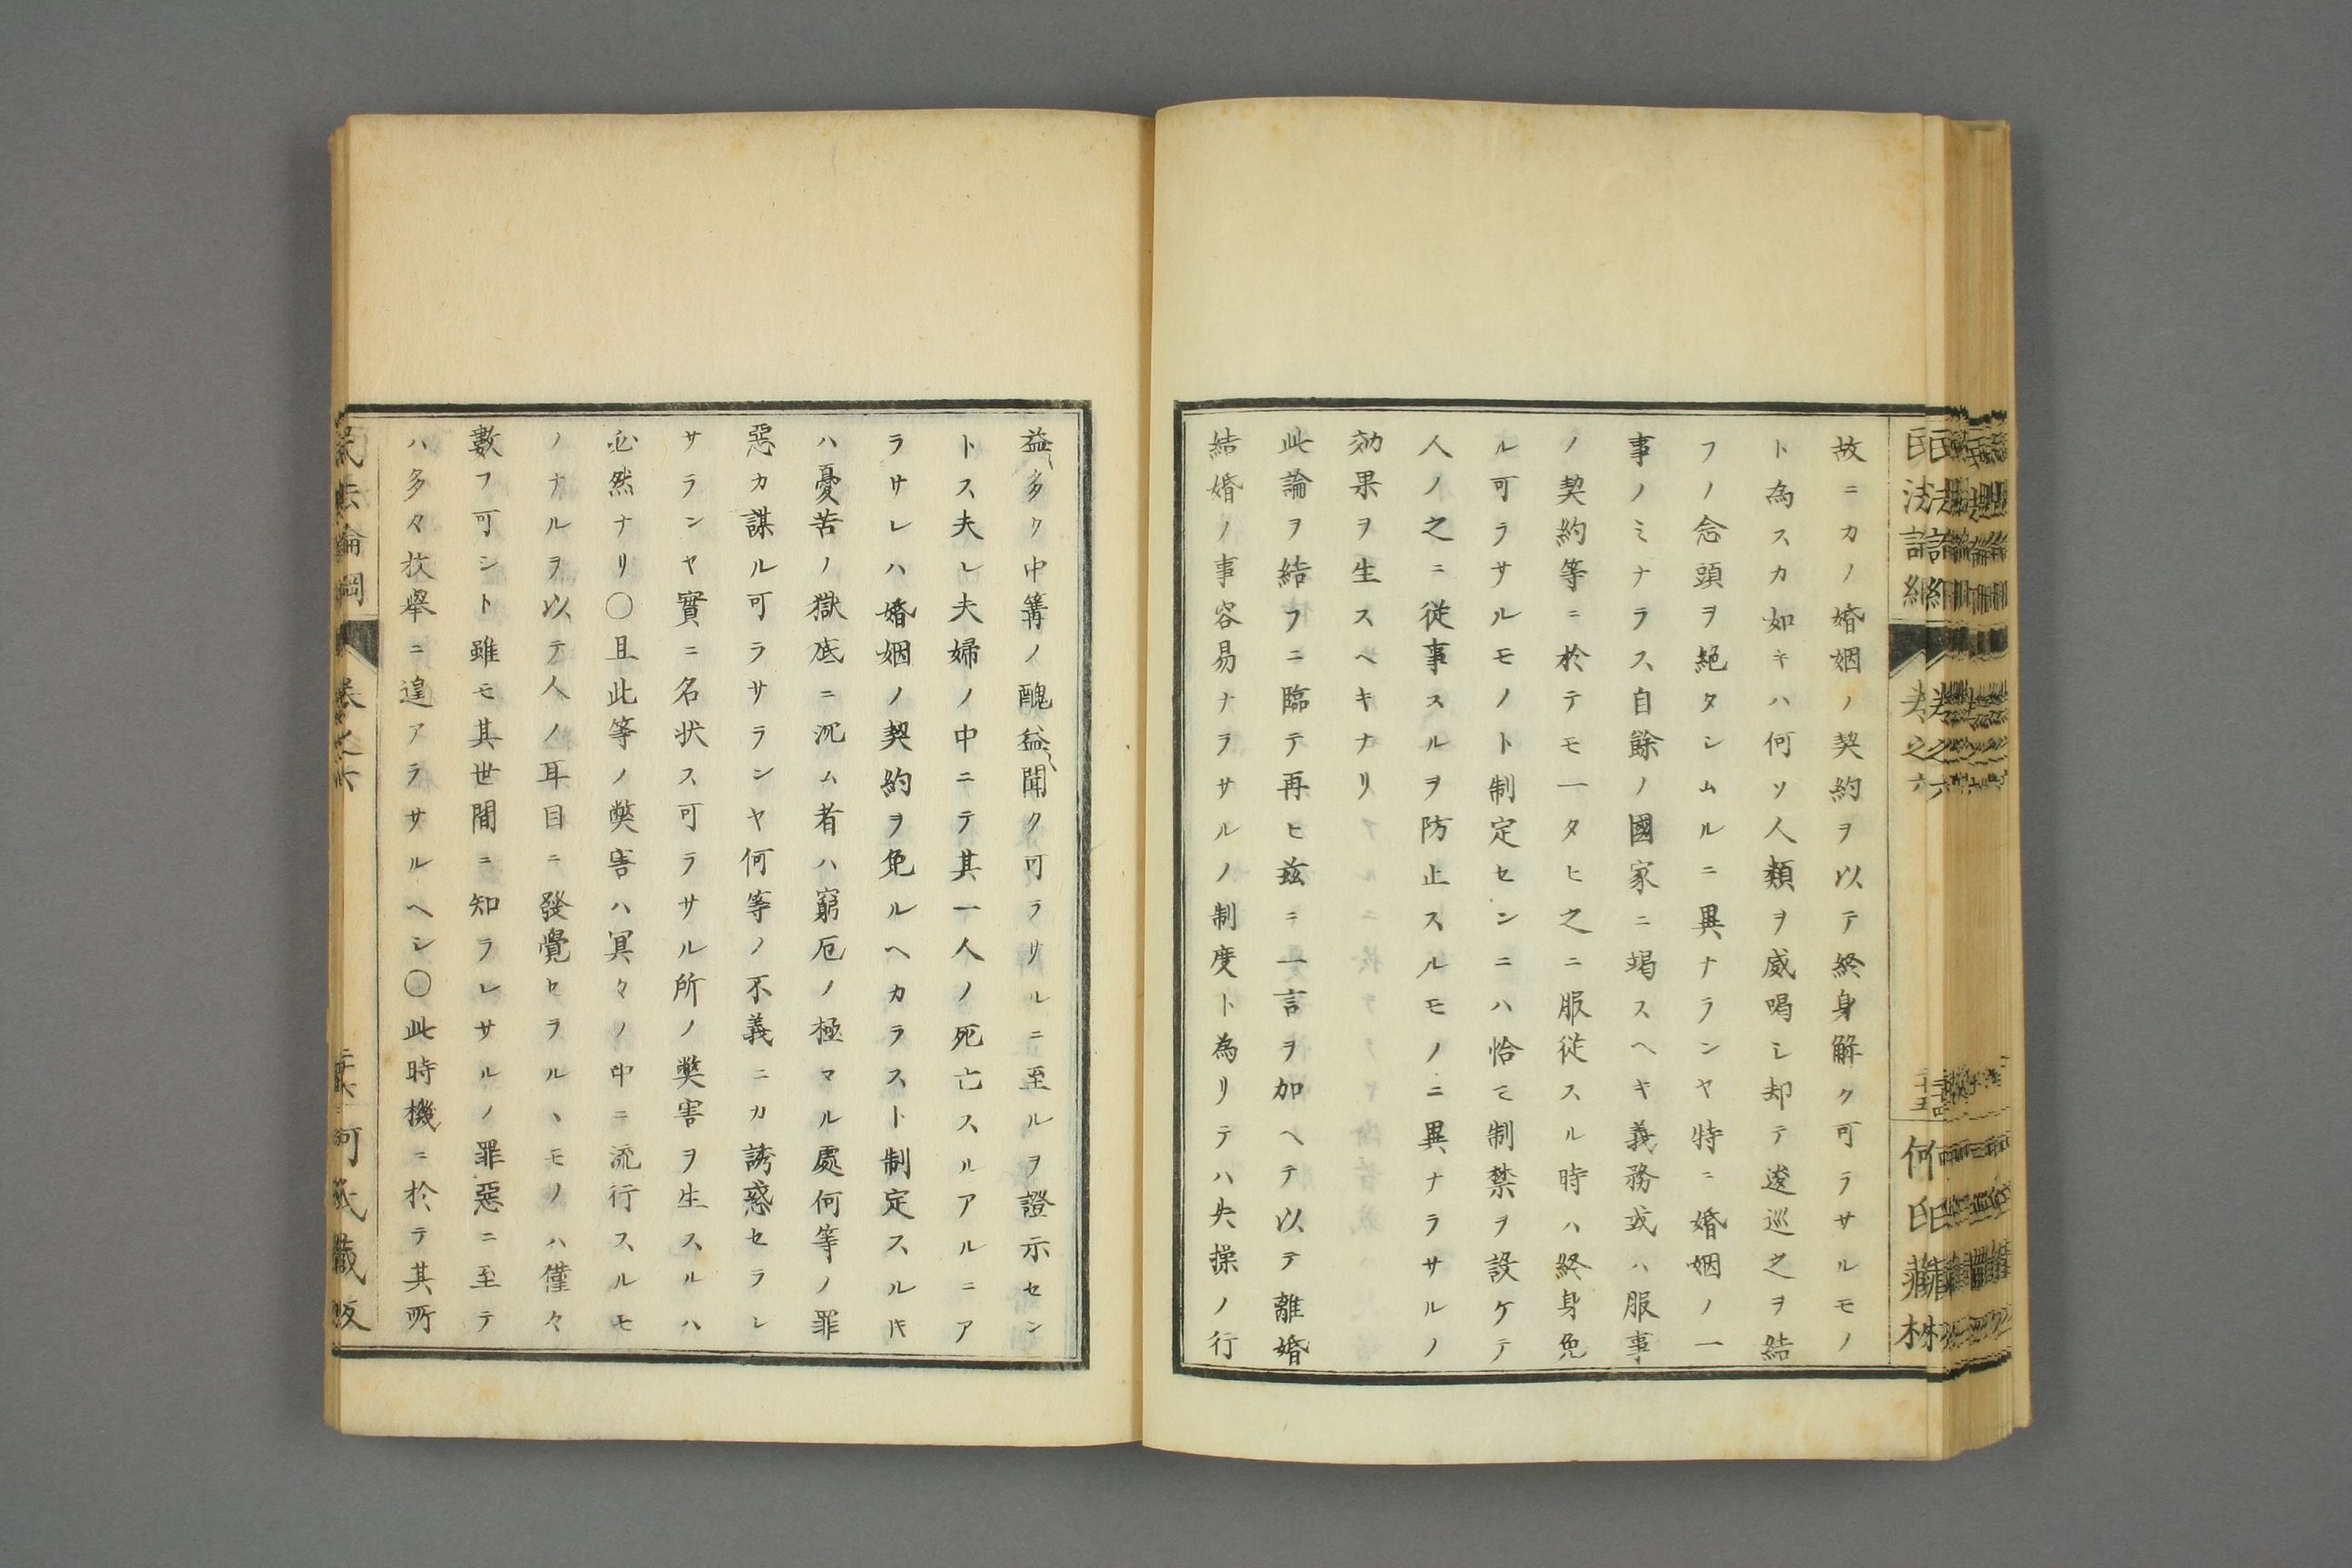 故ニカノ婚姻ノ契約ヲ以テ終身解ク可ラサルモノ
ト為スカ如キハ何ソ人類ヲ威喝シ却テ逡巡之ヲ結
フノ念頭ヲ絶タシムルニ異ナランヤ特ニ婚姻ノ一
事ノミナラス自餘ノ國家ニ竭スヘキ義務或ハ服事
ノ契約等ニ於テモ一タヒ之ニ服従スル時ハ終身免
ル可ラサルモノト制定センニハ恰モ制禁ヲ設ケテ
人ノ之ニ従事スルヲ防止スルモノニ異ナラサルノ
効果ヲ生スヘキナリ
此論ヲ結フニ臨テ再ヒ茲ニ一言ヲ加ヘテ以テ離婚
結婚ノ事容易ナラサルノ制度ト為リテハ失操ノ行
益〻多ク中篝ノ醜益〻聞ク可ラサルニ至ルヲ證示セン
トス夫レ夫婦ノ中ニテ其一人ノ死亡スルアルニア
ラサレハ婚姻ノ契約ヲ免ルヘカラスト制定スル𪜈
ハ憂苦ノ獄底ニ沉ム者ハ窮厄ノ極マル處何等ノ罪
惡カ謀ル可ラサランヤ何等ノ不義ニカ誘惑セラレ
サランヤ實ニ名状ス可ラサル所ノ獘害ヲ生スルハ
必然ナリ〇且此等ノ獘害ハ冥々ノ中ニ流行スルモ
ノナルヲ以テ人ノ耳目ニ發覺セラルヽモノハ僅々
數フ可シト雖モ其世間ニ知ラレサルノ罪惡ニ至テ
ハ多々枚擧ニ遑アラサルヘシ〇此時機ニ於テ其所
民法論綱
卷之六
何氏藏板